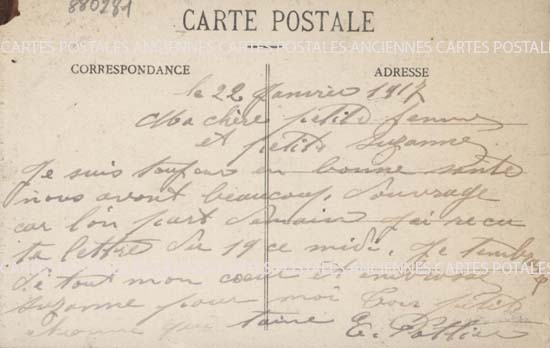 880281
CARTE POSTALE
CARTES POSTALES ANCIENNES CARTES POSTALES ANCIENNES CARTES POSTALES
CORRESPONDANCE
ADRESSE
le 22 Janvier 1917
Ma chère petite femme
et petite Suzanne
Je suis toujour en bonne santé
nous avont beaucoup d'ouvrage
car l'on part demain j'ai recu
ta lettre du 19 ce midi. Je
de tout mon coeur et
suzanne pour moi ton petit
homme qui taime E. Pottier